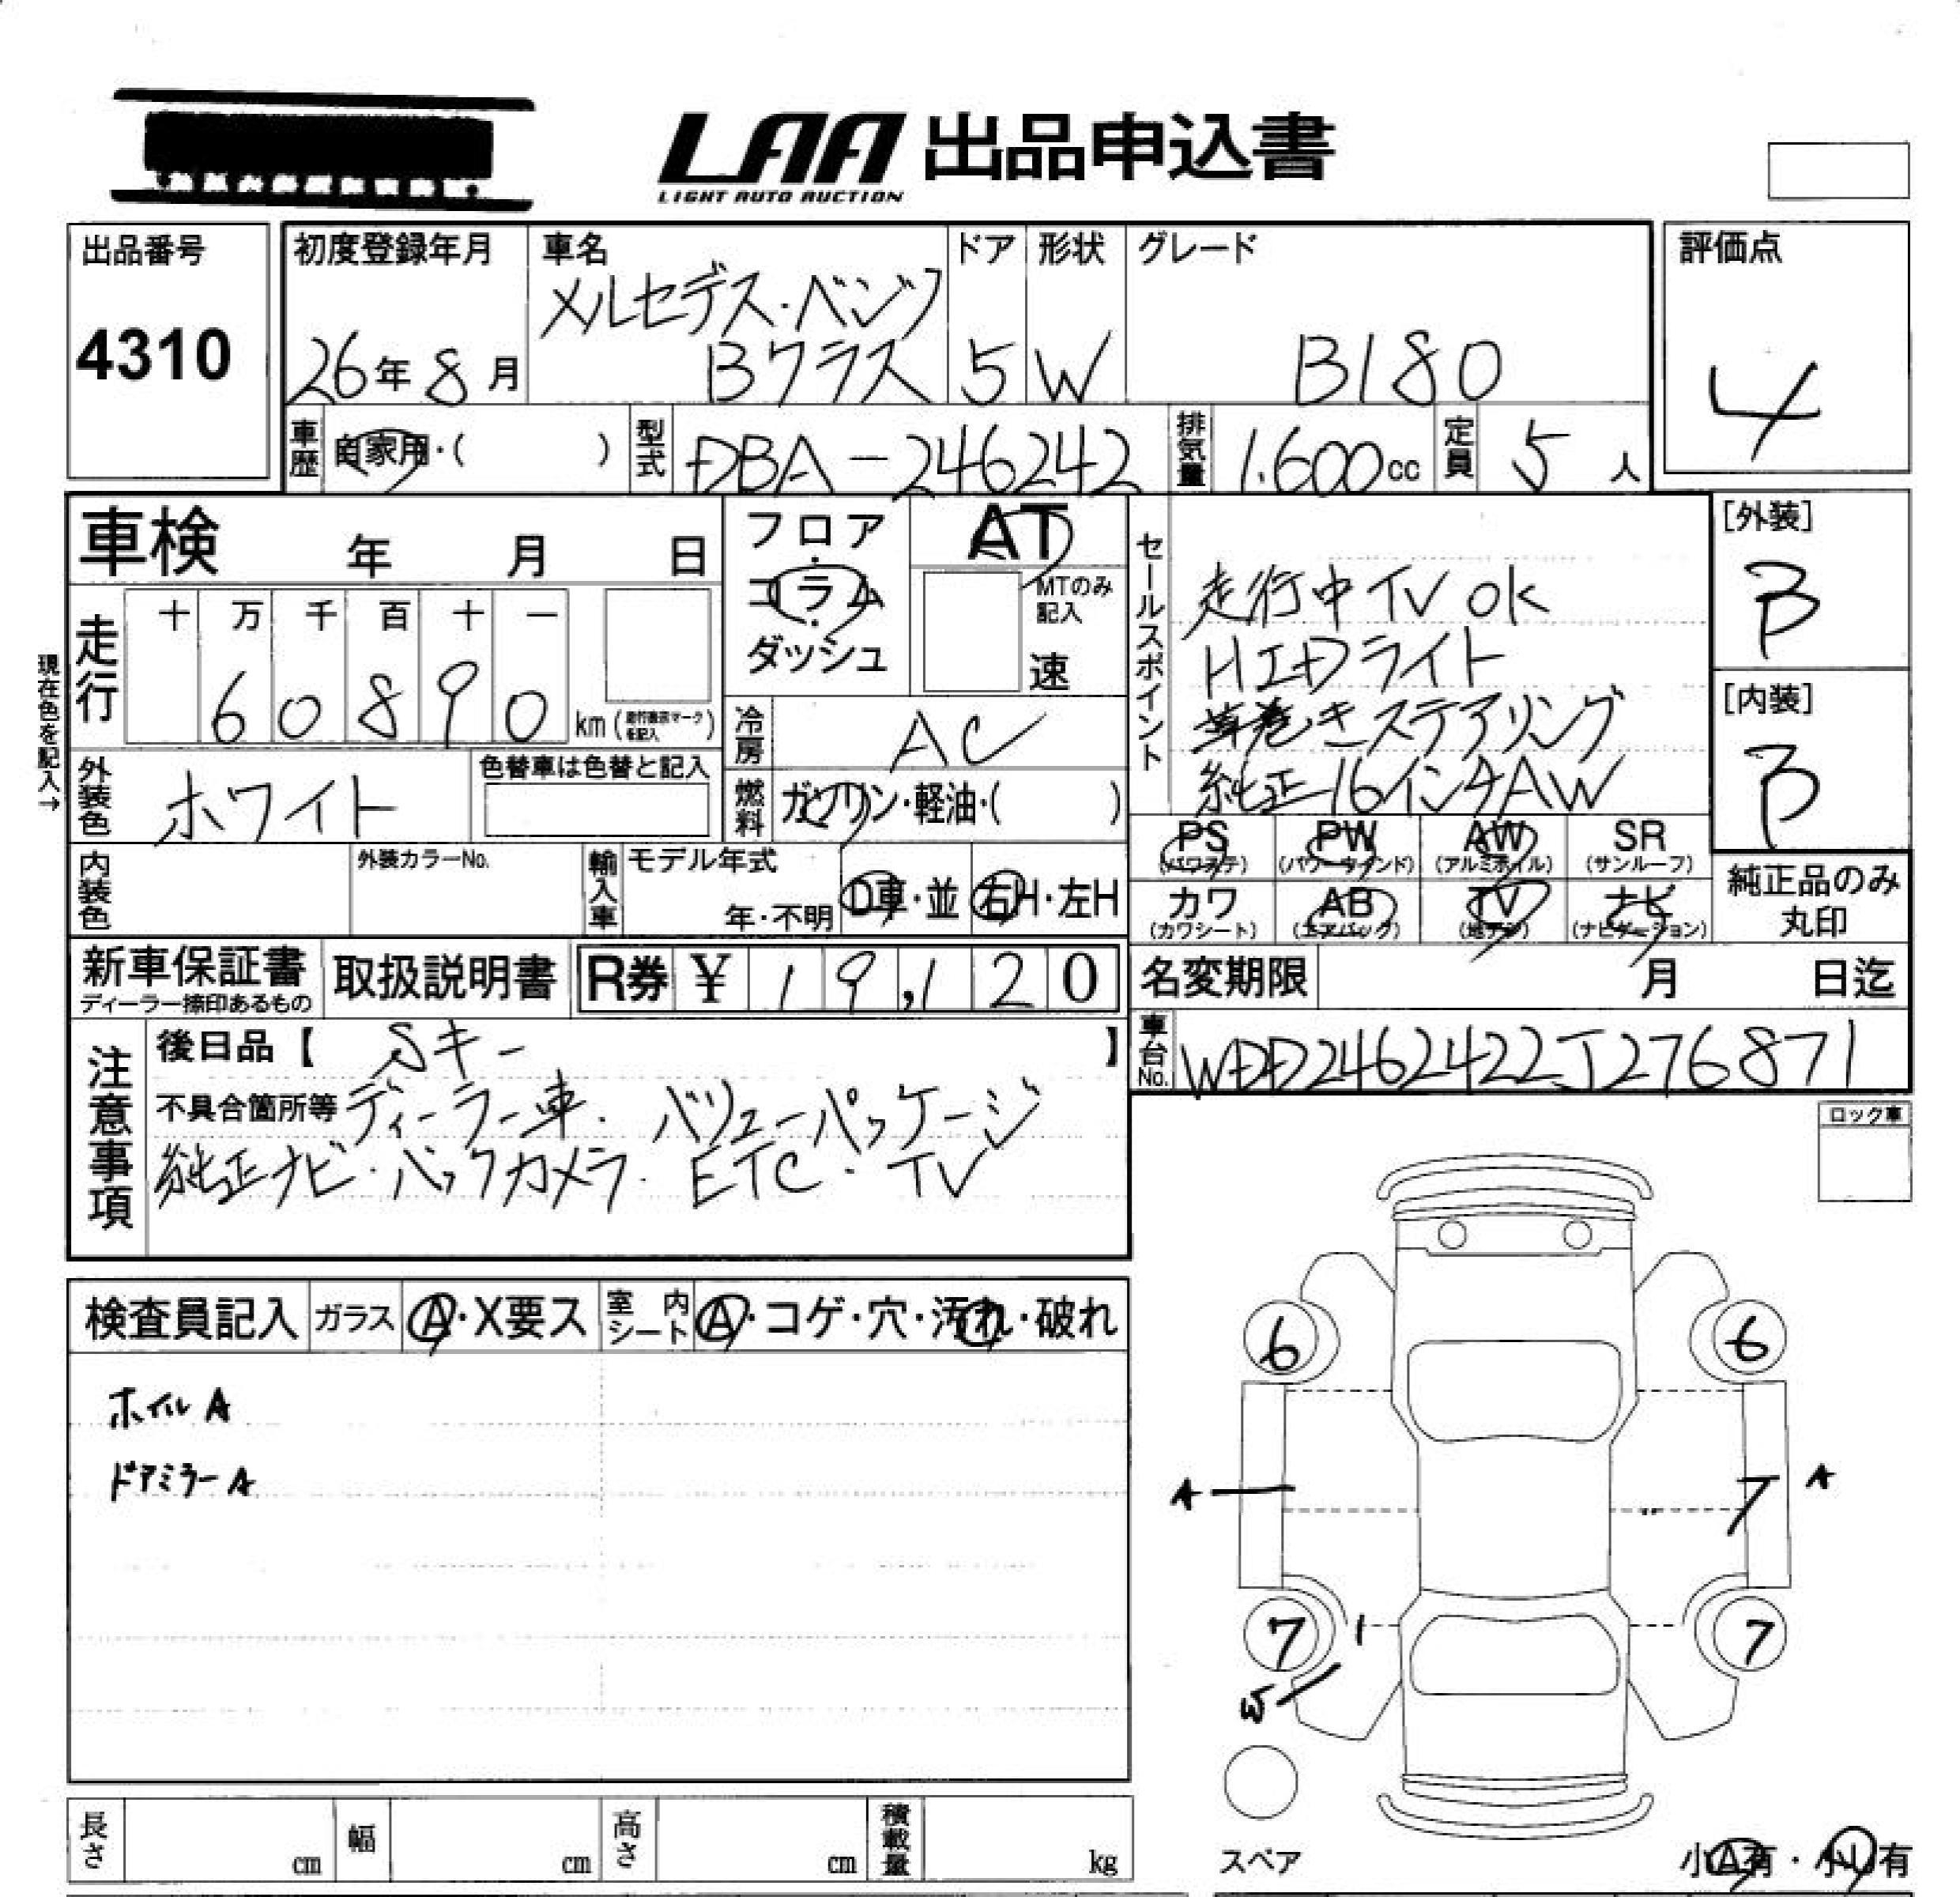 LAA 出品申込書
LIGHT AUTO AUCTION
出品番号
4310
初度登録年月
26年8月
車名
メルセデス・ベンツ
Bクラス
ドア
5
形状
W
グレード
B180
評価点
4
車歴 自家用・( )
型式 DBA-246242
排気量 1.600cc
定員 5人
車検 年 月 日
フロア・コラム・ダッシュ
AT
MTのみ記入
速
セールスポイント
走行中TV OK
HIDライト
革巻きステアリング
純正16インチAW
[外装]
B
[内装]
B
現在色を記入→
走行
十 万 千 百 十 一
6 0 8 9 0 km(走行表示マークを記入)
冷房 AC
外装色 ホワイト
色替車は色替と記入
燃料 ガソリン・軽油・( )
PS (パワステ)
PW (パワーウインド)
AW (アルミホイル)
SR (サンルーフ)
カワ (カワシート)
AB (エアバック)
TV (地デジ)
ナビ (ナビゲーション)
純正品のみ丸印
内装色
外装カラーNo.
輸入車
モデル年式
年・不明
D車・並
右H・左H
新車保証書
ディーラー捺印あるもの
取扱説明書
R券 ¥ 19,120
名変期限 月 日迄
車台No. WDD2462422J276871
注意事項
後日品【 Sキー 】
不具合箇所等 ディーラー車. バリューパッケージ
純正ナビ・バックカメラ. ETC・TV
ロック車
検査員記入
ガラス A・X要ス
室内シート A・コゲ・穴・汚れ・破れ
ホイル A
ドアミラー A
6
6
A
A
7
7
W
スペア
小A有・小U有
長さ cm
幅 cm
高さ cm
積載量 kg